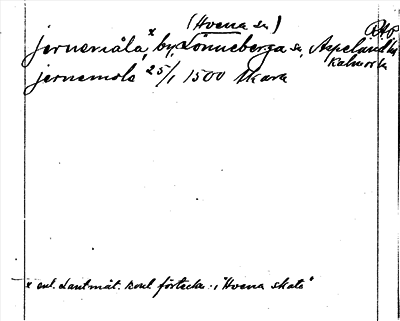 (Hvena sn)
RAP
jernemåla, x by, Lönneberga sn, Aspelands hd
Kalmar län
jernemola 25/1 1500 Skara
x enl. Lantmät. konl förteckn.: "Hvena skate"